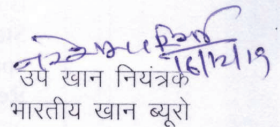 16/12/19
उप खान नियंत्रक
भारतीय खान ब्यूरो